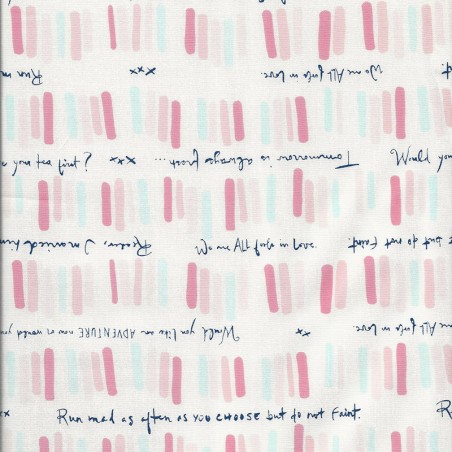 Run xxx We are ALL fools in Love.
you tea first? xxx Tomorrow is always fresh ... Would you
Reader, I married him We are ALL fools in Love. but do not faint.
Would you like an ADVENTURE now or would you xx We are ALL fools in Love.
xx Run mad as often as YOU CHOOSE but do not faint. R